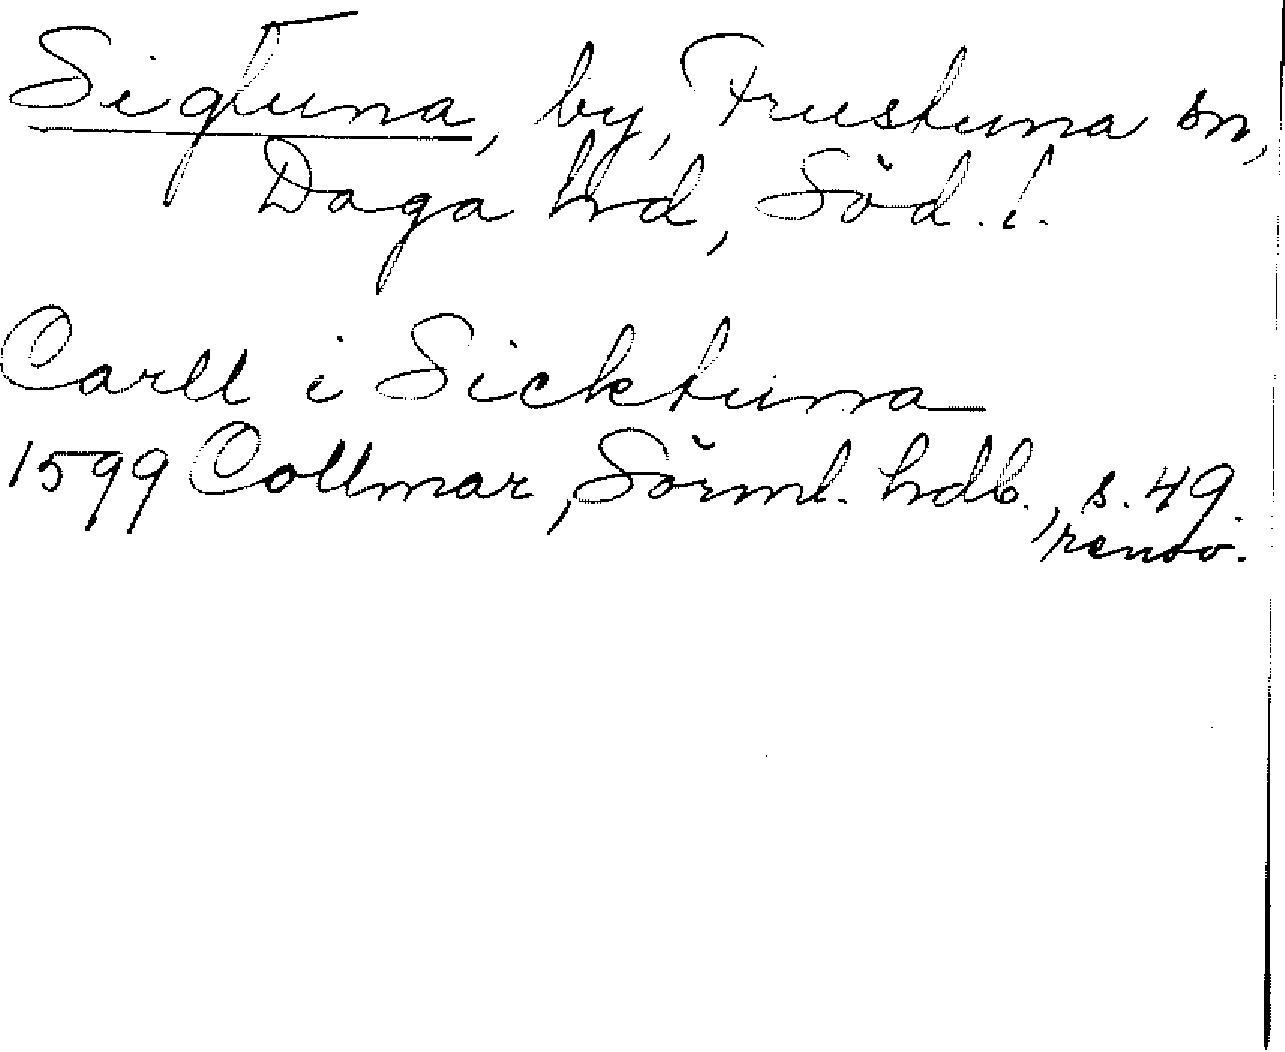 Sigtuna, by, Frustuna sn,
Daga hd, Söd. l.
Carll i Sicktuna
1599 Collmar, Sörml. hdl., s. 49.
renov.